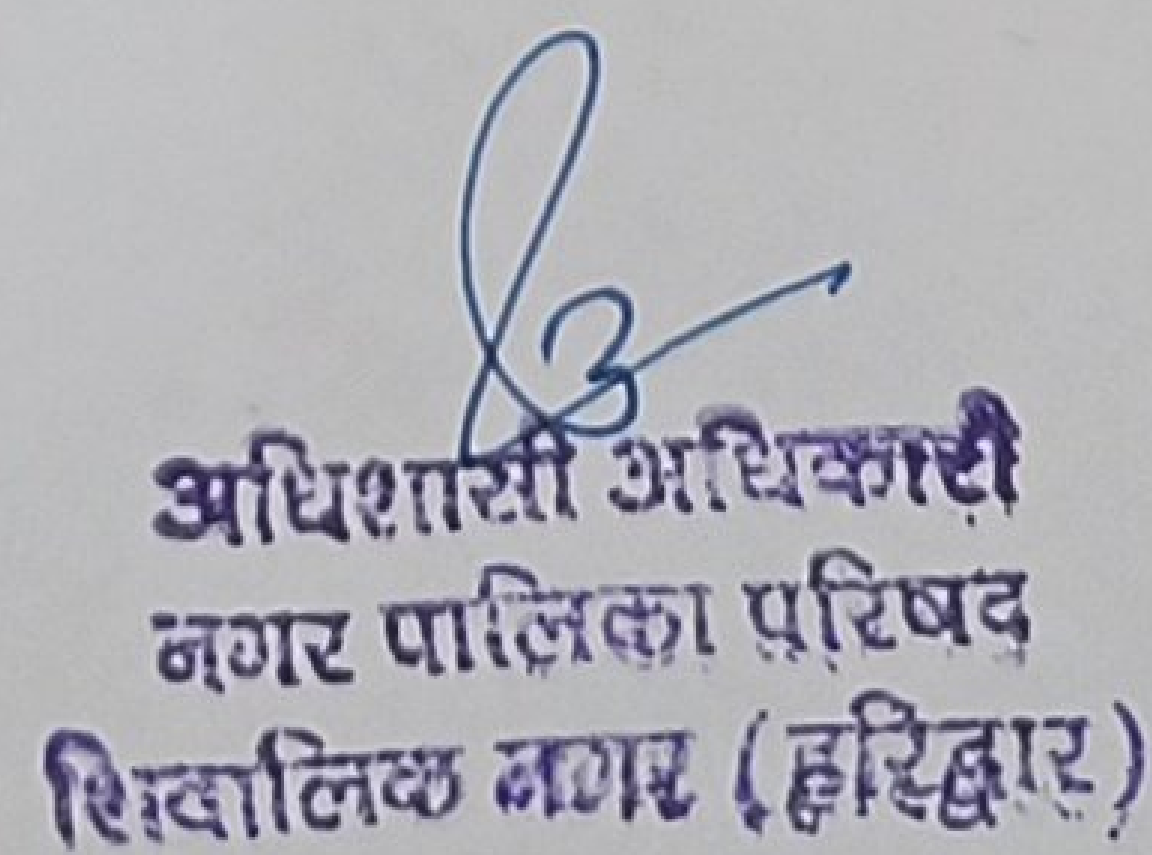 अधिशासी अधिकारी
नगर पालिका परिषद
शिवालिक नगर (हरिद्वार)